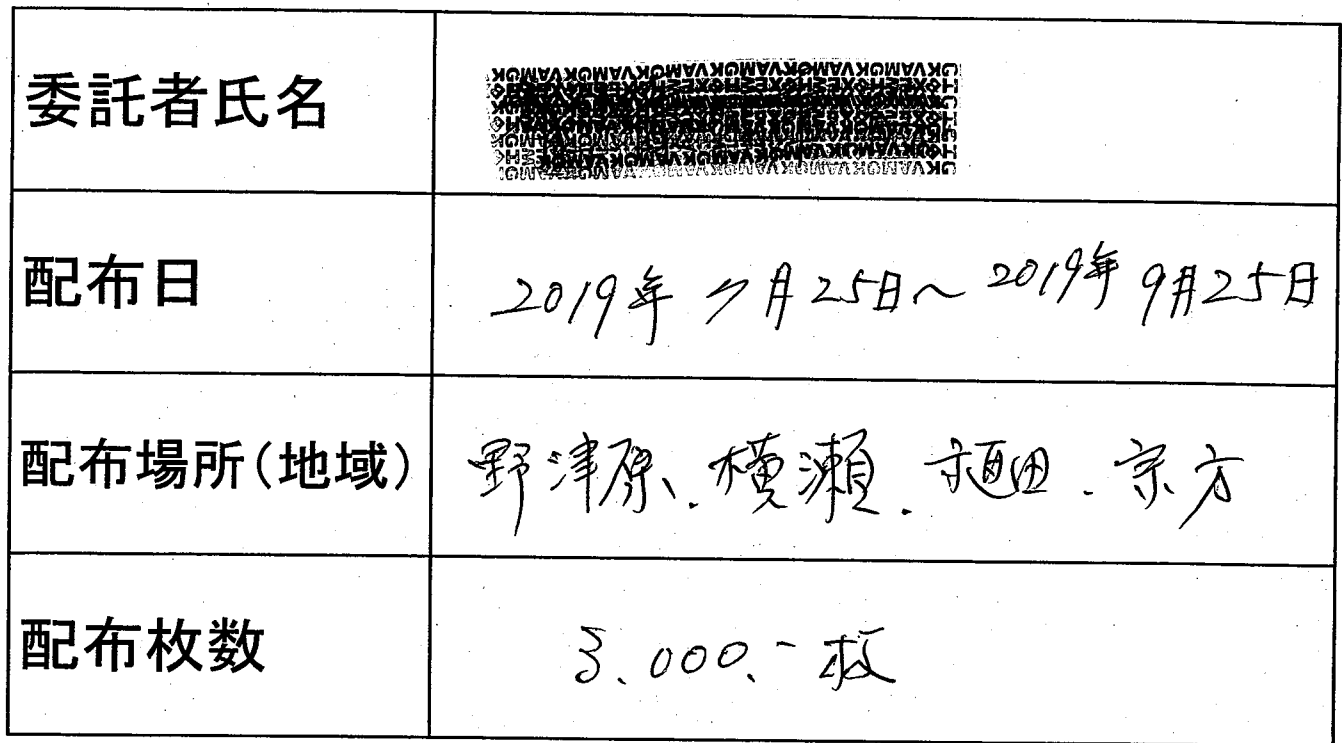 委託者氏名
配布日
2019年7月25日～2019年9月25日
配布場所(地域)
野津原、横瀬、樋田、宗方
配布枚数
3,000.-枚